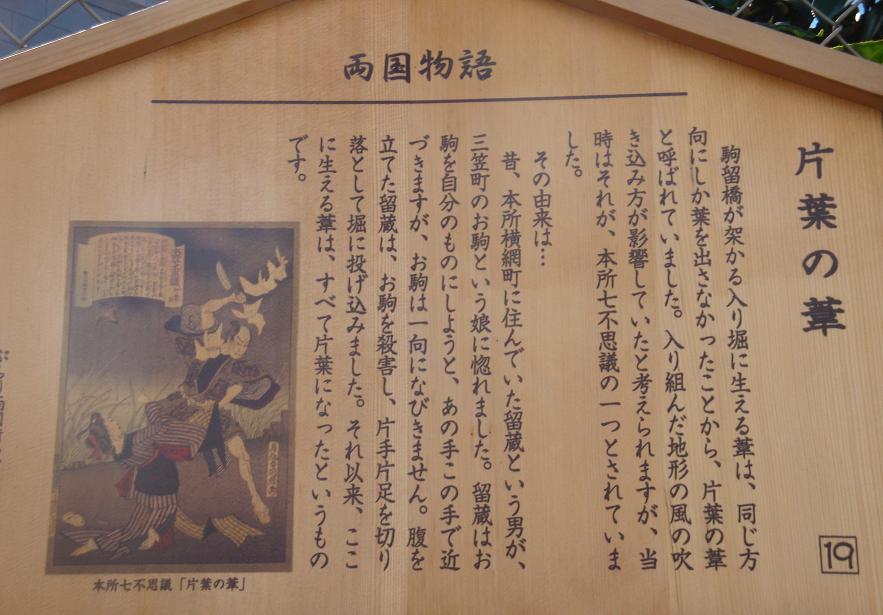 両国物語
片葉の葦
駒留橋が架かる入り堀に生える葦は、同じ方
向にしか葉を出さなかったことから、片葉の葦
と呼ばれていました。入り組んだ地形の風の吹
き込み方が影響していたと考えられますが、当
時はそれが、本所七不思議の一つとされていま
した。
その由来は…
昔、本所横網町に住んでいた留蔵という男が、
三笠町のお駒という娘に惚れました。留蔵はお
駒を自分のものにしようと、あの手この手で近
づきますが、お駒は一向になびきません。腹を
立てた留蔵は、お駒を殺害し、片手片足を切り
落として堀に投げ込みました。それ以来、ここ
に生える葦は、すべて片葉になったというもの
です。
19
本所七不思議「片葉の葦」